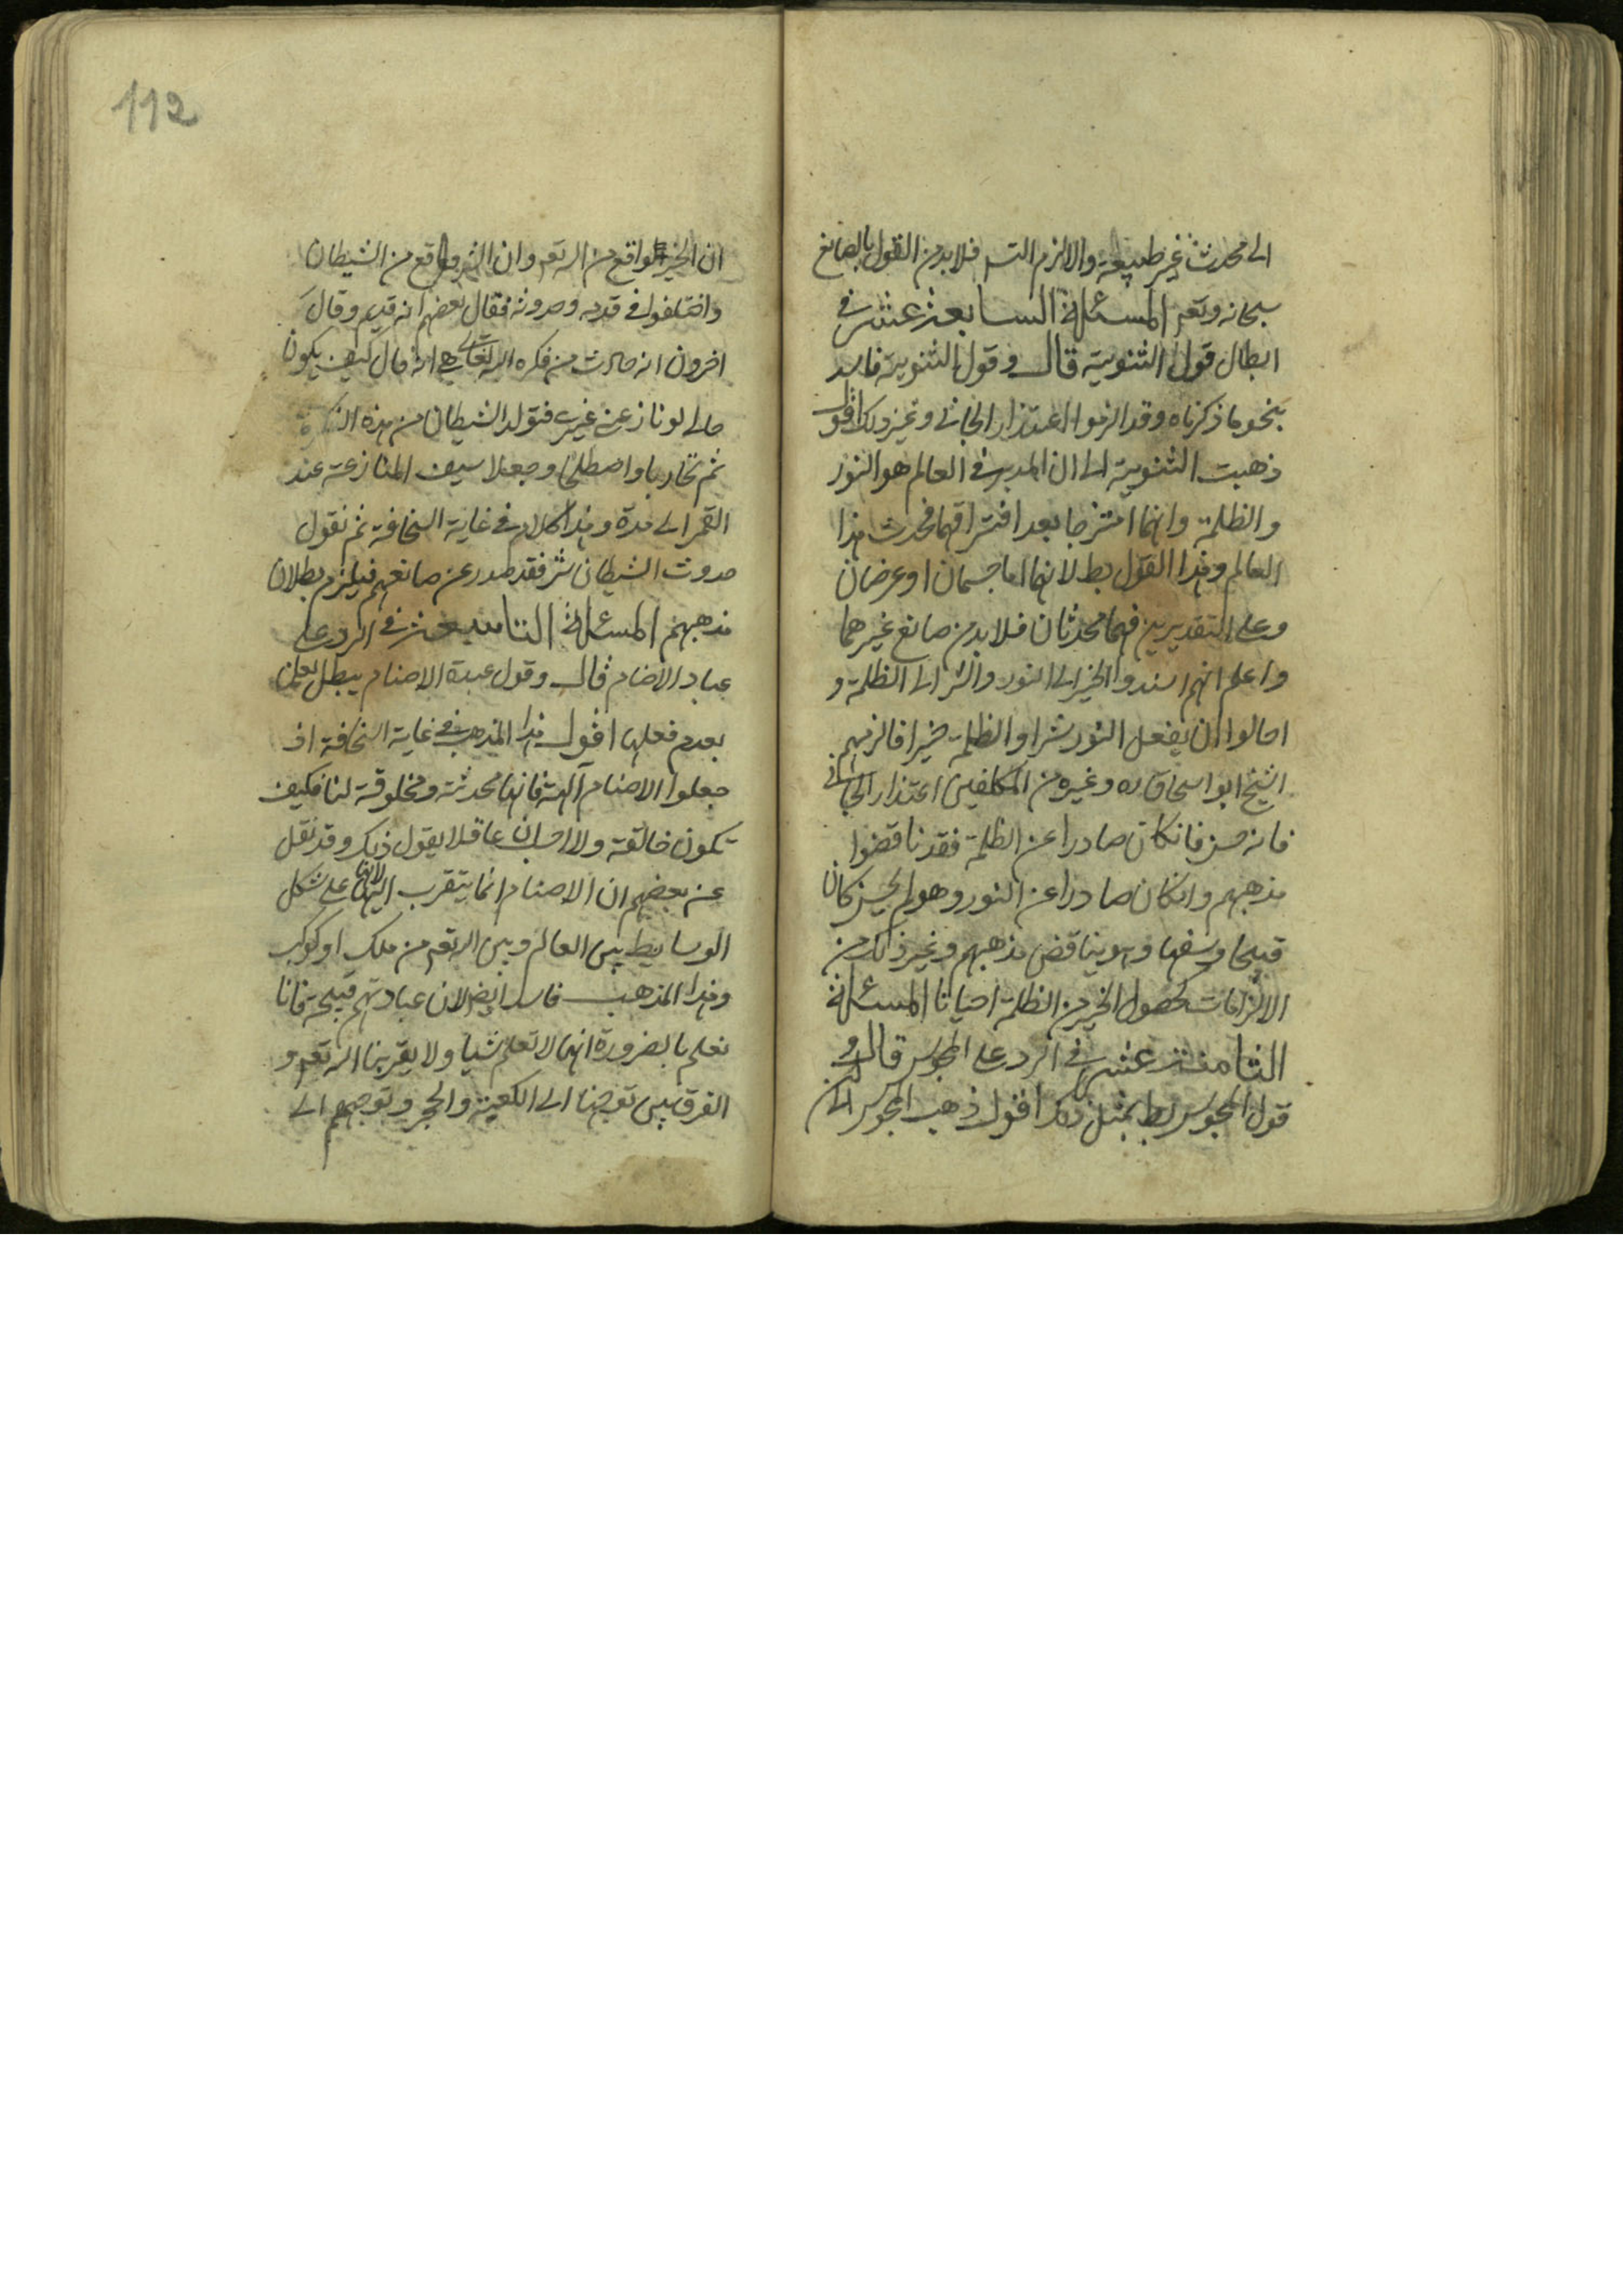 الى محدث غير طبيعة والا لزم التسـ فلا بد من القول بالصانع
سبحانه وتعـ المسئلة السابعة عشر في
ابطال قول الثنوية قال وقول الثنوية فاسد
بنحو ما ذكرناه وقد الزموا اعتذار الجاني وغير ذلك اقول
ذهبت الثنوية الى ان المدبر في العالم هو النور
والظلمة وانهما امتزجا بعد افتراقهما فحدث هذا
العالم وهذا القول بط لانهما اما جسمان او عرضان
وعلى التقديرين فهما محدثان فلا بد من صانع غيرهما
واعلم انهم اسندوا الخير الى النور والشر الى الظلمة و
احالوا ان يفعل النور شرا والظلمة خيرا فالزمهم
الشيخ ابو اسحاق ره وغيره من المتكلمين اعتذار الجاني
فانه حسن فانكان صادرا عن الظلمة فقد ناقضوا
مذهبهم وانكان صادرا عن النور وهو لم يجن كان
قبيحا وسفها وهو يناقض مذهبهم وغير ذلك من
الالزامات كحصول الخير من الظلمة احيانا المسئلة
الثامنة عشر في الرد على المجوس قال و
قول المجوس بط بمثل ذلك اقول ذهب المجوس الى
ان الخير واقع من الله تعـ وان الشر واقع من الشيطان
واختلفوا في قدمه وحدوثه فقال بعضهم انه قديم وقال
اخرون انه حادث من فكره الله تعالى هي انه قال كيف يكون
حالى لو نازعني غيري فتولد الشيطان من هذه الفكرة
ثم تحاربا واصطلحا وجعلا سيف المنازعة عند
القمر الى مدة وهذا كلام في غاية السخافة ثم نقول
حدوث الشيطان شر فقد صدر عن صانعهم فيلزم بطلان
مذهبهم المسئلة التاسعة عشر في الرد على
عباد الاصنام قال وقول عبدة الاصنام يبطل بعلمنا
بعدم فعلها اقول هذا المذهب في غاية السخافة اذ
جعلوا الاصنام الهة فانها محدثة ومخلوقة لنا فكيف
تكون خالقة ولا احسب ان عاقلا يقول ذلك وقد نقل
عن بعضهم ان الاصنام انما يتقرب اليها لانها على شكل
الوسايط بين العالم وبين الله تعـ من ملك او كوكب
وهذا المذهب فاسد ايضا لان عبادتهم قبيحة فانا
نعلم بالضرورة انها لا تعلم شيا ولا يقربنا الى الله تعـ و
الفرق بين توجهنا الى الكعبة والحجر وتوجههم الى
112